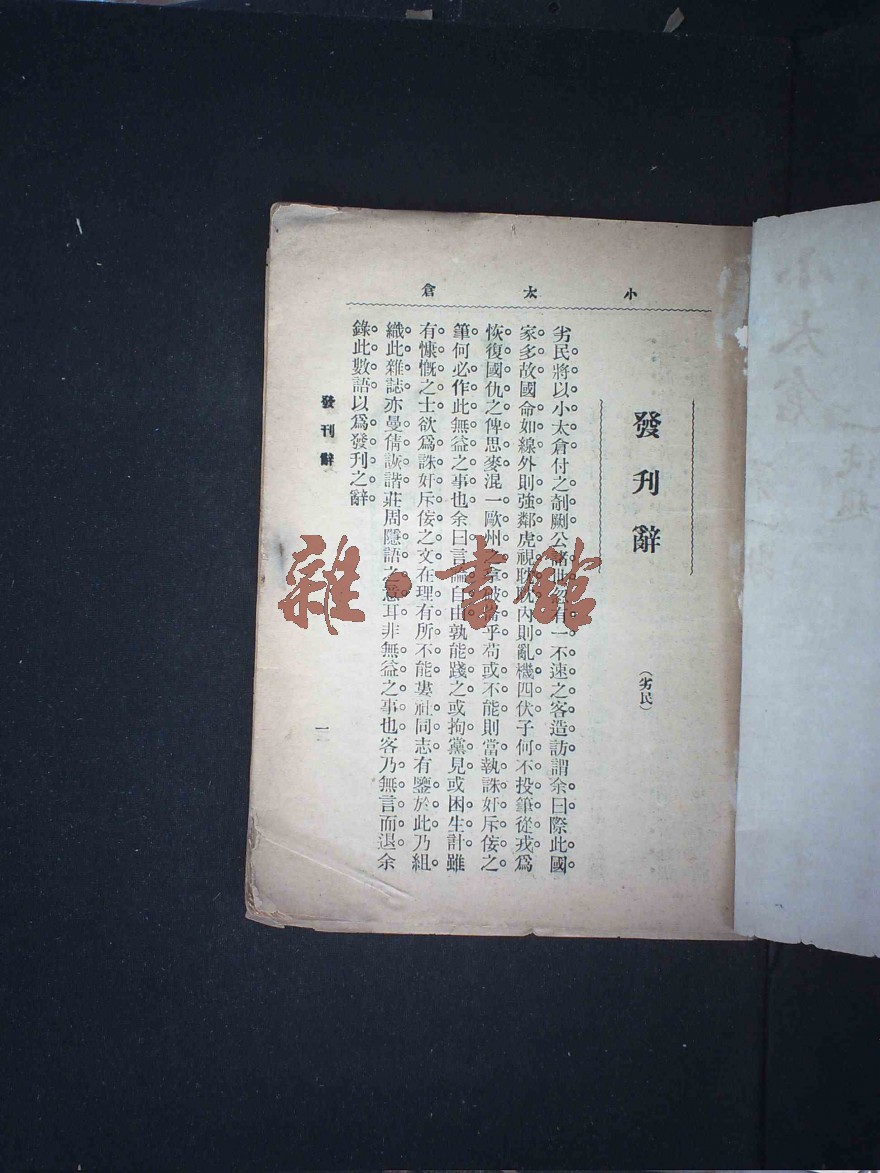 小太倉
發刊辭
(劣民)
劣民將以小太倉付之剞劂公諸世忽有一不速之客造訪謂余曰際此國
家多故國命如線外則強鄰虎視耽耽內則亂機四伏子何不投筆從戎爲
恢復國仇之俾思麥混一歐州之拿破崙乎苟或不能則當執誅奸斥佞之
筆何必作此無益之事也余曰言論自由孰能踐之或拘黨見或困生計雖
有慷慨之士欲爲誅奸斥佞之文在理有所不能婁社同志有鑒於此乃組
織此雜誌亦曼倩詼諧莊周隱語之意耳非無益之事也客乃無言而退余
錄此數語以爲發刊之辭
發刊辭
一
雜·書館
小太倉